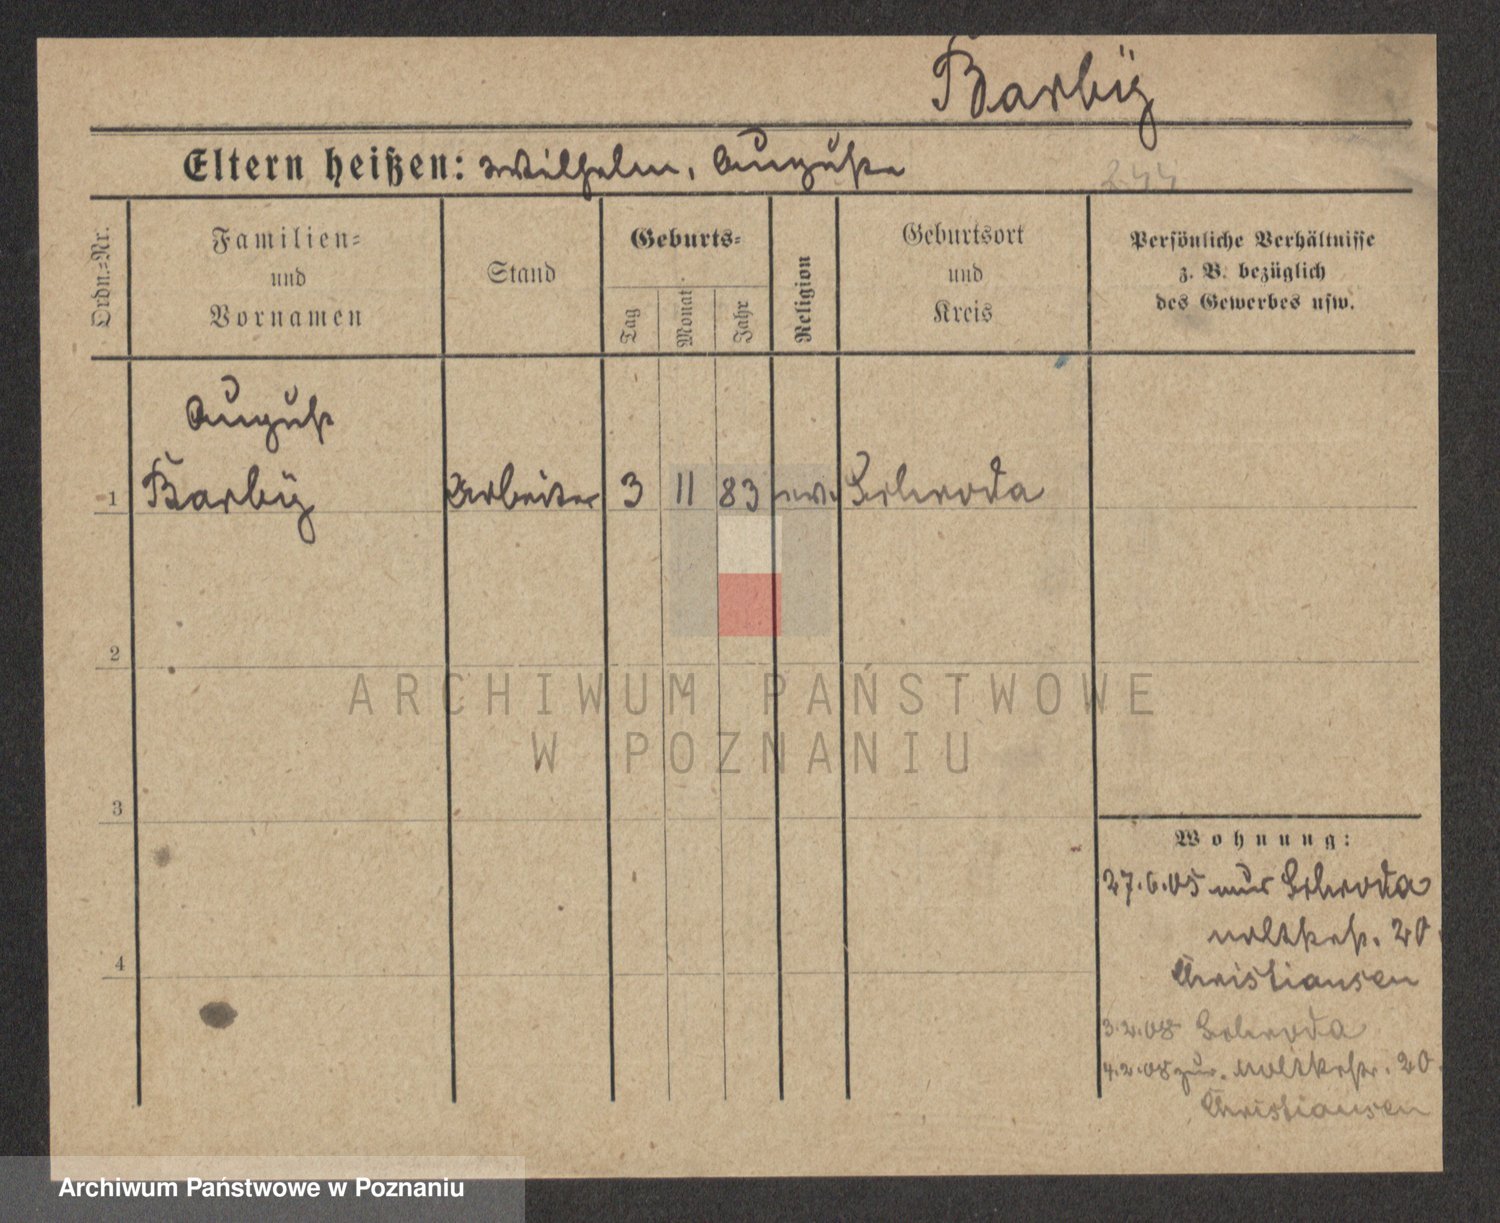 Barbÿ
Eltern heißen: Wilhelm, Auguste
244
Ordn.=Nr.
Familien=
und
Vornamen
Stand
Geburts=
Tag
Monat
Jahr
Religion
Geburtsort
und
Kreis
Persönliche Verhältnisse
z. B. bezüglich
des Gewerbes usw.
August
1 Barbÿ Arbeiter 3 11 83 ev. Schroda
2
ARCHIWUM PAŃSTWOWE
W POZNANIU
3
Wohnung:
27.6.05 aus Schroda
Moltkestr. 20
4
Christiansen
3.2.08 Schroda
4.2.08 zur. Moltkestr. 20
Christiansen
Archiwum Państwowe w Poznaniu